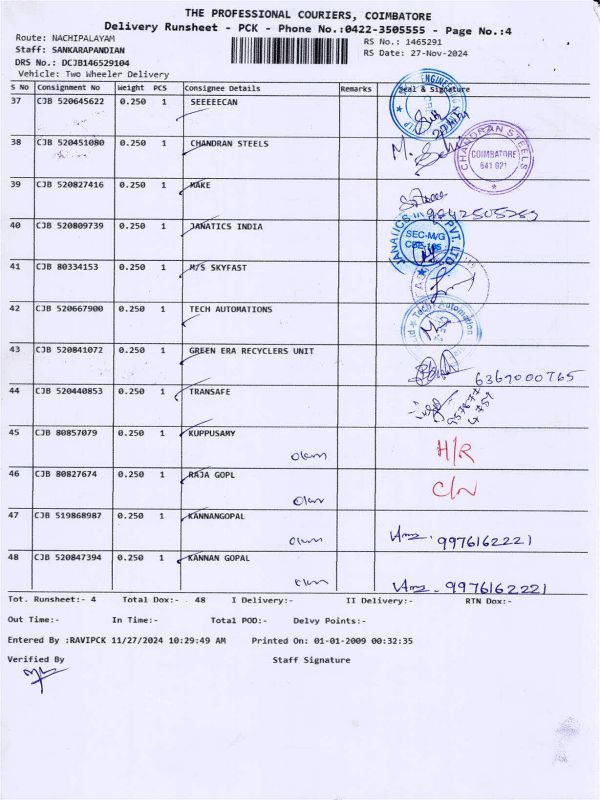 THE PROFESSIONAL COURIERS, COIMBATORE
Delivery Runsheet - PCK - Phone No.:0422-3505555 - Page No.:4
Route: NACHIPALAYAM
RS No.: 1465291
Staff: SANKARAPANDIAN
RS Date: 27-Nov-2024
DRS No.: DCJB146529104
Vehicle: Two Wheeler Delivery
S No Consignment No Weight PCS Consignee Details Remarks Seal & Signature
37 CJB 520645622 0.250 1 SEEEEECAN
38 CJB 520451080 0.250 1 CHANDRAN STEELS
CHANDRAN STEELS
COIMBATORE
641 021
39 CJB 520827416 0.250 1 MAKE
9842505259
40 CJB 520809739 0.250 1 JANATICS INDIA
JANATICS PVT. LTD
SEC-M/G
41 CJB 80334153 0.250 1 M/S SKYFAST
42 CJB 520667900 0.250 1 TECH AUTOMATIONS
Tech Automation
43 CJB 520841072 0.250 1 GREEN ERA RECYCLERS UNIT
6369000765
44 CJB 520440853 0.250 1 TRANSAFE
45 CJB 80857079 0.250 1 KUPPUSAMY
H/R
46 CJB 80827674 0.250 1 RAJA GOPL
47 CJB 519868987 0.250 1 KANNANGOPAL
9976162221
48 CJB 520847394 0.250 1 KANNAN GOPAL
9976162221
Tot. Runsheet:- 4 Total Dox:- 48 I Delivery:- II Delivery:- RTN Dox:-
Out Time:- In Time:- Total POD:- Delvy Points:-
Entered By :RAVIPCK 11/27/2024 10:29:49 AM Printed On: 01-01-2009 00:32:35
Verified By Staff Signature